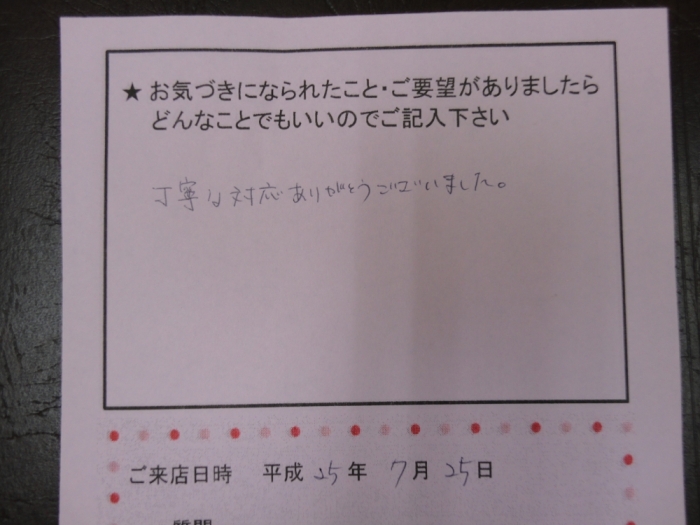 ★ お気づきになられたこと・ご要望がありましたら
どんなことでもいいのでご記入下さい
丁寧な対応ありがとうございました。
ご来店日時 平成25年 7月25日
質問